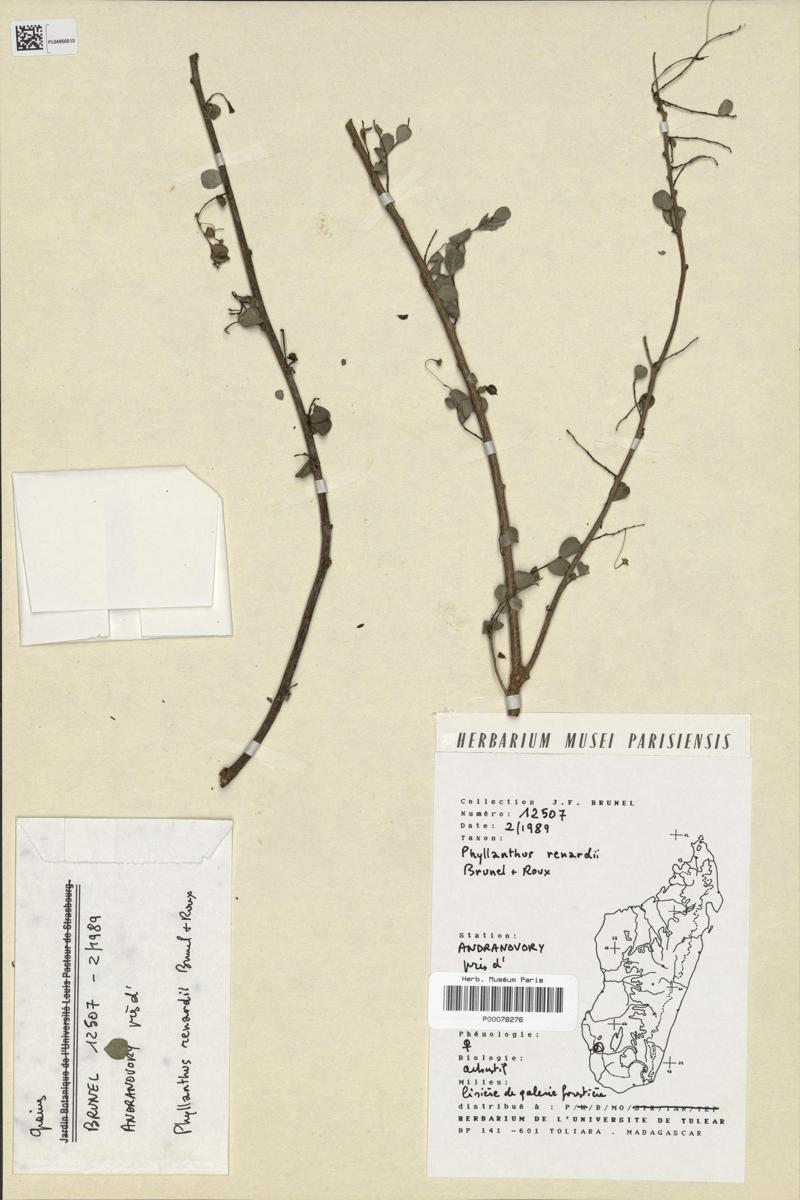 PL04050013
HERBARIUM MUSEI PARISIENSIS
Collection J.F. BRUNEL
Numéro: 12507
Date: 2/1989
Taxon:
Phyllanthus renardii
Brunel + Roux
Station:
ANDRANOVORY
près d'
Herb. Muséum Paris
P00078276
Phénologie:
♀
Biologie:
arbustif
Milieu:
lisière de galerie forestière
distribué à : P/M/B/MO/STR/TAN/TEF
HERBARIUM DE L'UNIVERSITE DE TULEAR
BP 141 -601 TOLIARA . MADAGASCAR
Jardin Botanique de l'Université Louis Pasteur de Strasbourg.
BRUNEL 12507 - 2/1989
ANDRANOVORY près d'
Phyllanthus renardii Brunel + Roux